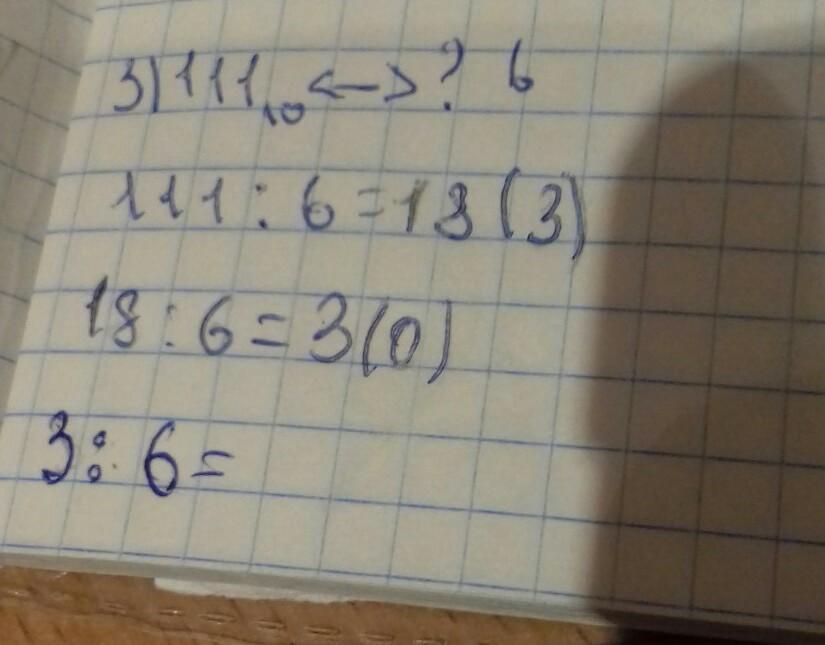 3) 111₁₀ <—> ? 6
111 : 6 = 18 (3)
18 : 6 = 3 (0)
3 : 6 =